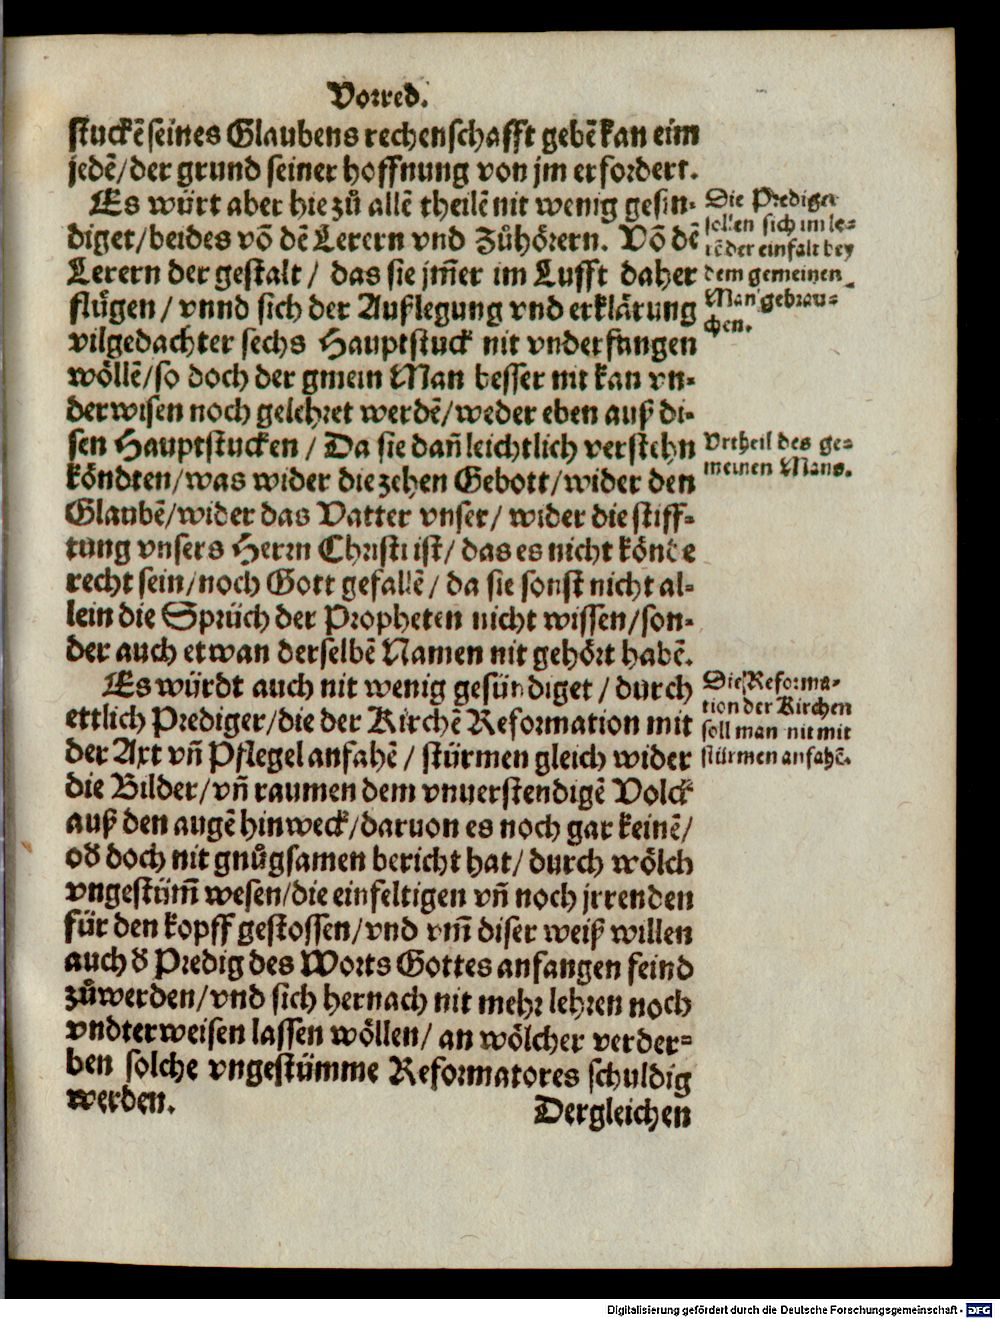 Vorred.
stuckē seines Glaubens rechenschafft gebē kan eim
jedē/ der grund seiner hoffnung von jm erfordert.
Es würt aber hie zů allē theilē nit wenig gesin-
diget/ beides võ dē Lerern vnd Zůhörern. Võ dē
Lerern der gestalt/ das sie jm̃er im Lufft daher
flügen/ vnnd sich der Außlegung vnd erklärung
vilgedachter sechs Hauptstuck nit vnderfangen
wöllē/ so doch der gmein Man besser nit kan vn-
derwisen noch gelehret werdē/ weder eben auß di-
sen Hauptstucken/ Da sie dañ leichtlich verstehn
köndten/ was wider die zehen Gebott/ wider den
Glaubē/ wider das Vatter vnser/ wider die stiff-
tung vnsers Herrn Christi ist/ das es nicht könde
recht sein/ noch Gott gefallē/ da sie sonst nicht al-
lein die Sprüch der Propheten nicht wissen/ son-
der auch etwan derselbē Namen nit gehört habē.
Es würdt auch nit wenig gesündiget/ durch
ettlich Prediger/ die der Kirchē Reformation mit
der Axt vñ Pflegel anfahē/ stürmen gleich wider
die Bilder/ vñ raumen dem vnuerstendigē Volck
auß den augē hinweck/ daruon es noch gar keinē/
oð doch nit gnůgsamen bericht hat/ durch wölch
vngestüm̃ wesen/ die einfeltigen vñ noch jrrenden
für den kopff gestossen/ vnd vm̃ diser weiß willen
auch ð Predig des Worts Gottes anfangen feind
zůwerden/ vnd sich hernach nit mehr lehren noch
vndterweisen lassen wöllen/ an wölcher verder-
ben solche vngestümme Reformatores schuldig
werden.
Dergleichen
Die Prediger
sollen sich im le-
rē der einfalt bey
dem gemeinen
Man gebrau-
chen.
Vrtheil des ge-
meinen Mans.
Die Reforma-
tion der Kirchen
soll man nit mit
stürmen anfahē.
Digitalisierung gefördert durch die Deutsche Forschungsgemeinschaft - DFG